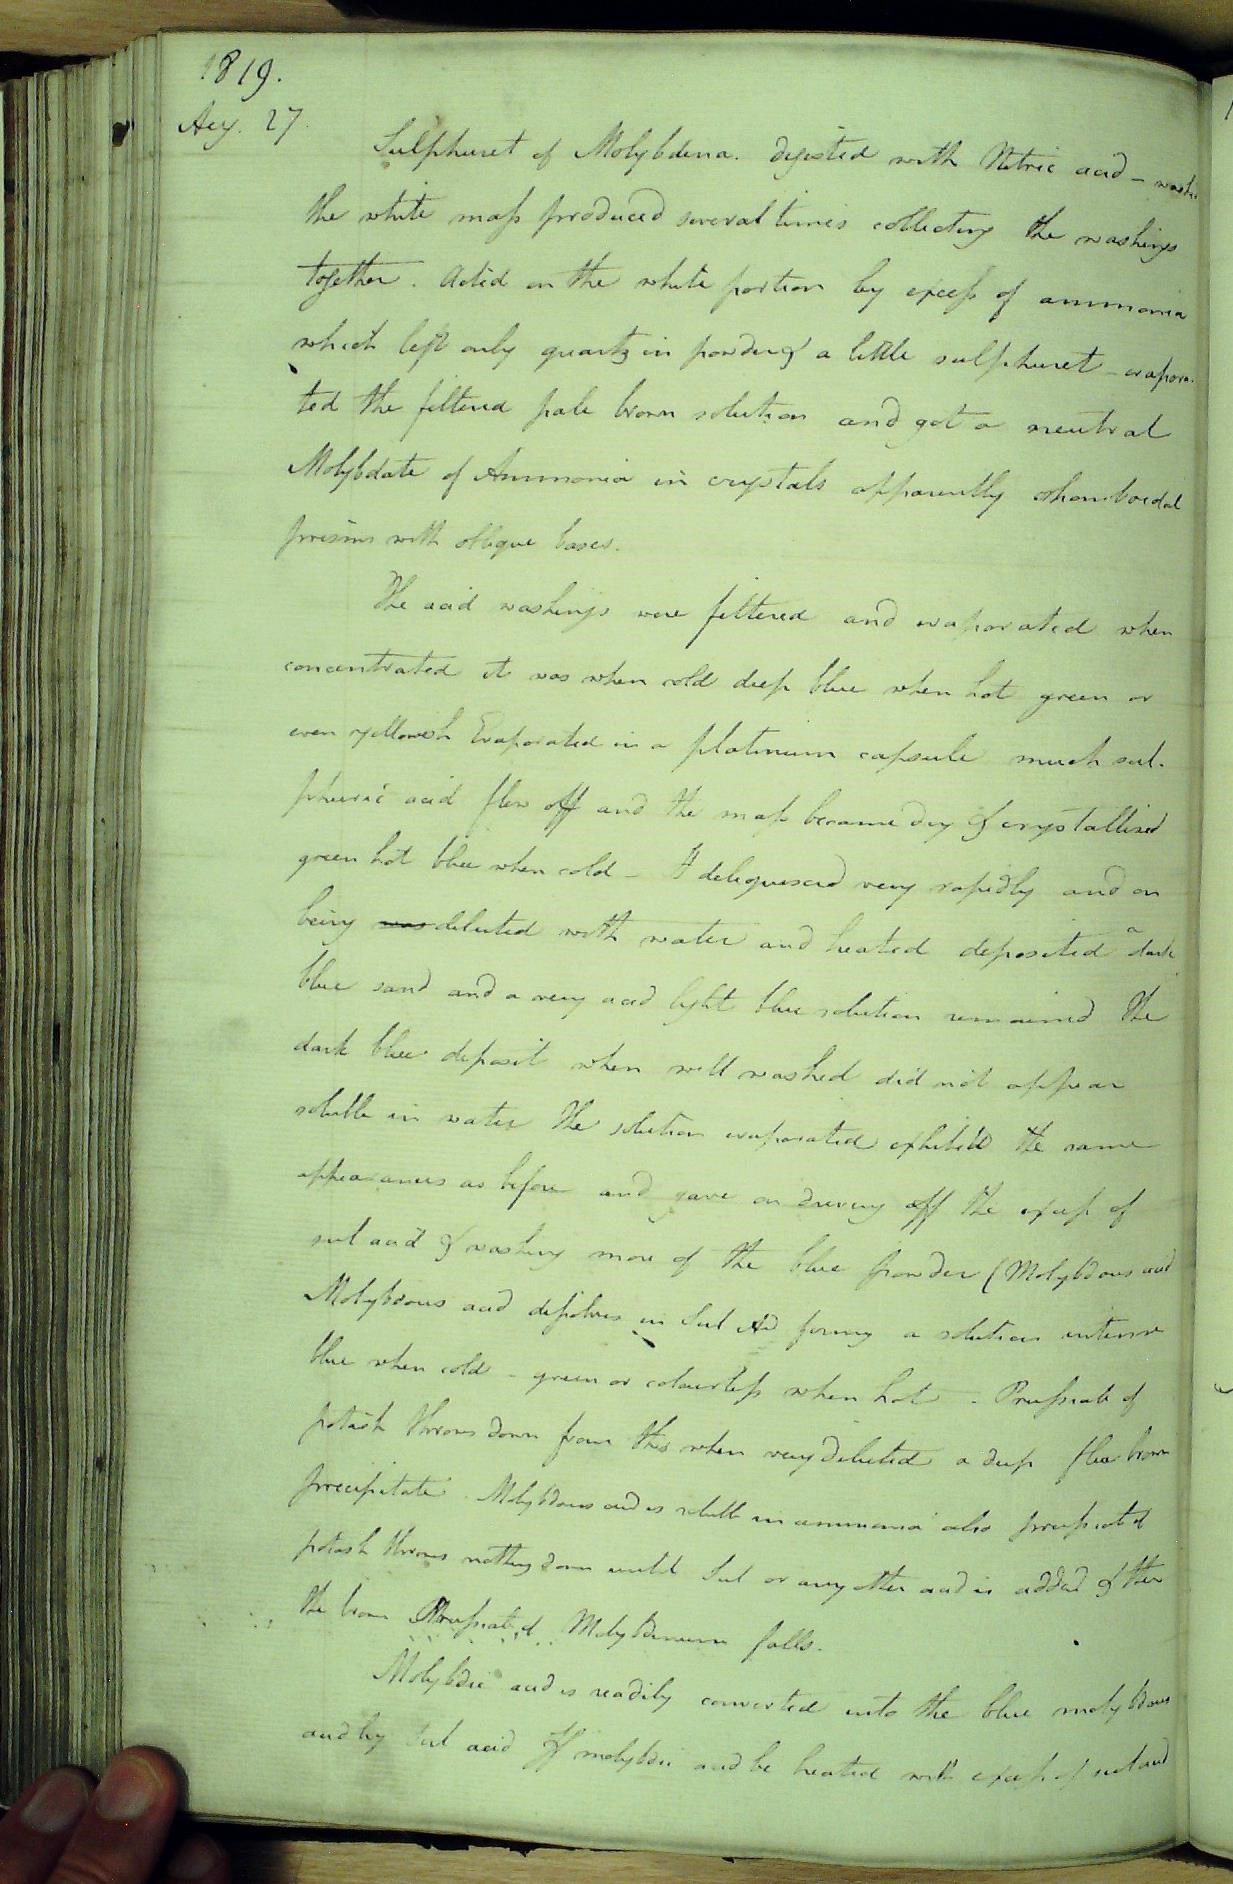 1819.
Aug. 27.
Sulphuret of Molybdena. digested with Nitric acid - washed
the white mass produced several times collecting the washings
together. Acted on the white portion by excess of ammonia
which left only quartz in powder & a little sulphuret - evapora-
ted the filtered pale brown solution and got a neutral
Molybdate of Ammonia in crystals apparently rhomboidal
prisms with oblique bases.
The acid washings were filtered and evaporated when
concentrated it was when cold deep blue when hot green or
even yellowish Evaporated in a platinum capsule much sul-
phuric acid flew off and the mass became dry & crystallised
green hot blue when cold - It deliquesced very rapidly and on
being was diluted with water and heated deposited a dark
blue sand and a very acid light blue solution remained the
dark blue deposit when well washed did not appear
soluble in water the solution evaporated exhibited the same
appearances as before and gave on driving off the excess of
sul acid & washing more of the blue powder (Molybdous acid
Molybdous acid dissolves in Sul Ad forming a solution intense
blue when cold - green or colourless when hot - Prussiate of
potash throws down from this when very diluted a deep brown
precipitate. Molybdous acid is soluble in ammonia also prussiate of
potash throws nothing down until Sul or any other acid is added & then
the brown Prussiate of Molybdenum falls.
Molybdic acid is readily converted into the blue molybdous
acid by Sul acid If molybdic acid be heated with excess of sul acid